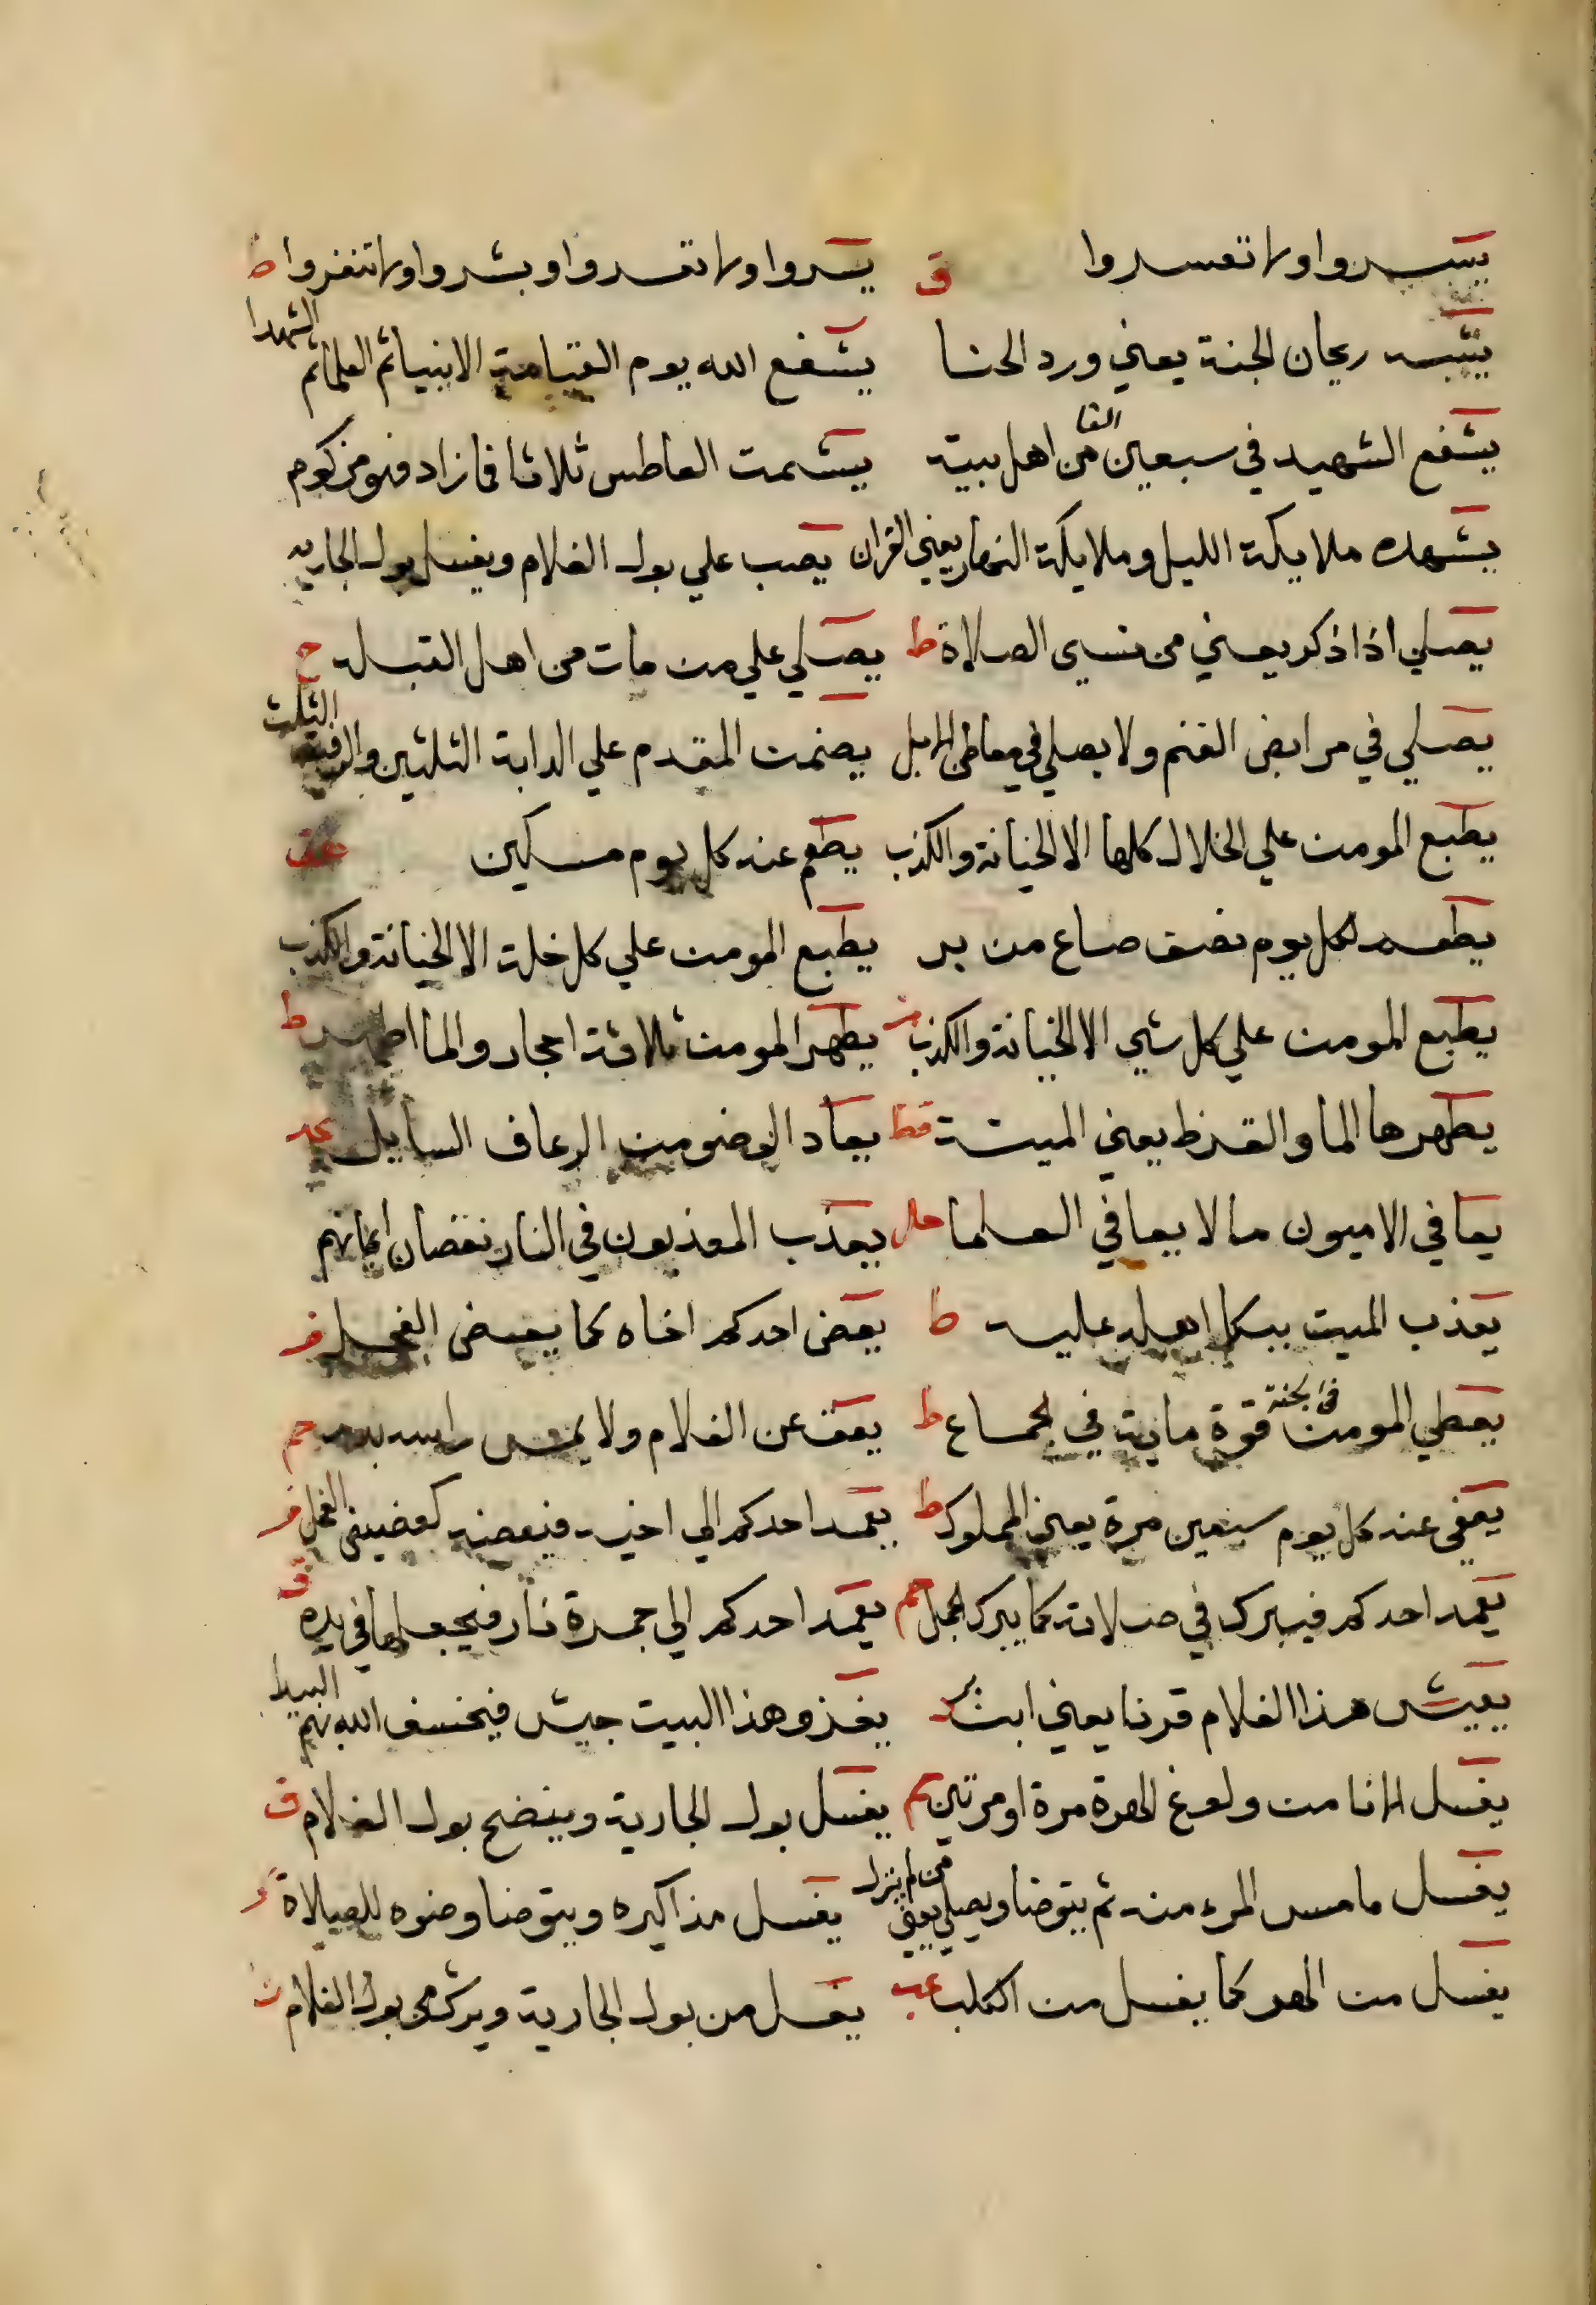 يسروا ولا تعسروا ق يسروا ولا تعسروا وبشروا ولا تنفروا ط
يشبه ريحان الجنة يعني ورد الحنا يشفع الله يوم القيامة الانبيا ثم العلما ثم الشهدا
يشفع الشهيد في سبعين الفا من اهل بيته يشمت العاطس ثلاثا فما زاد فهو مزكوم
يشهده ملايكة الليل وملايكة النهار يعني القران يصب علي بول الغلام ويغسل بول الجارية
يصلي اذا ذكر يعني من نسي الصلاة ط يصلي علي من مات من اهل القبلة ح
يصلي في مرابض الغنم ولا يصلي في معاطن الابل يضمن المقدم علي الدابة الثلثين والرديف الثلث
يطبع المومن علي الخلال كلها الا الخيانة والكذب يطعم عنه كل يوم مسكين عق
يطعمه لكل يوم نصف صاع من بر يطبع المومن علي كل خلة الا الخيانة والكذب
يطبع المومن علي كل شي الا الخيانة والكذب يطهر المومن ثلاثة احجار والما اطهر ط
يطهرها الما والقرظ يعني الميتة قط يعاد الوضو من الرعاف السايل عد
يعافي الاميون ما لا يعافي العلما حل يعذب المعذبون في النار نقصان ايمانهم
يعذب الميت ببكا اهله عليه ط يعض احدكم اخاه كما يعض الفحل
يعطي المومن في الجنة قوة ماية في الجماع ط يعق عن الغلام ولا يمس راسه بدم حم
يعفي عنه كل يوم سبعين مرة يعني المملوك ط يعمد احدكم الي اخيه فيعضه كعضيض الفحل
يعمد احدكم فيبرك في صلاته كما يبرك الجمل حم يعمد احدكم الي جمرة نار فيجعلها في يده ق
يعيش هذا الغلام قرنا يعني ابن يغزو هذا البيت جيش فيخسف الله بهم البيدا
يغسل الانا من ولوغ الهرة مرة او مرتين يغسل بول الجارية وينضح بول الغلام ق
يغسل ما مس المرء منه ثم يتوضا ويصلي يعني من لم ينزل يغسل مذاكيره ويتوضا وضوه للصلاة
يغسل من الهر كما يغسل من الكلب عب يغسل من بول الجارية ويرش من بول الغلام ن